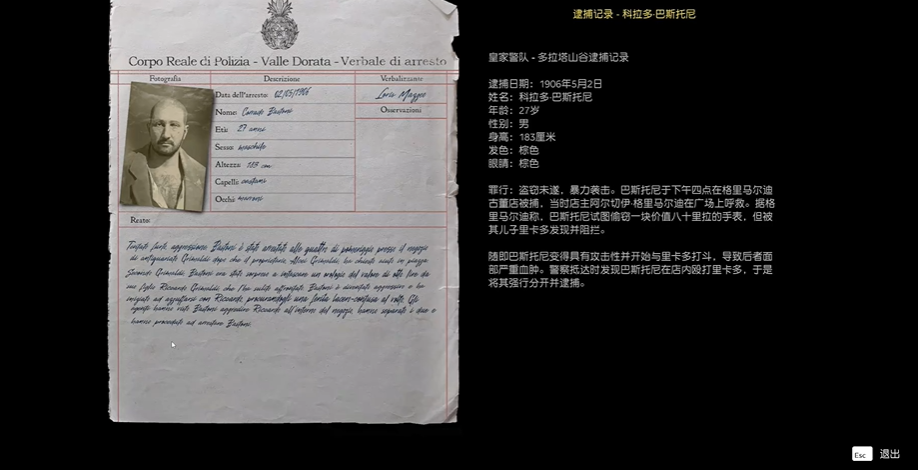 逮捕记录 - 科拉多·巴斯托尼
Corpo Reale di Polizia - Valle Dorata - Verbale di arresto
Fotografia Descrizione Verbalizzante
Data dell'arresto: 02/05/1906
Osservazioni
Nome: Corrado Bastoni
Età: 27 anni
Sesso: maschile
Altezza: 183 cm
Capelli: castani
Occhi: marroni
Reato:
Tentato furto, aggressione. Bastoni è stato arrestato alle quattro di pomeriggio presso il negozio
di antiquariato Grimaldi dopo che il proprietario, Alcei Grimaldi, ha chiesto aiuto in piazza.
Secondo Grimaldi, Bastoni era stato sorpreso a intascare un orologio del valore di
suo figlio Riccardo Grimaldi, che l'ha subito affrontato. Bastoni è diventato aggressivo e ha
iniziato ad azzuffarsi con Riccardo, procurandogli una ferita lacero-contusa al volto. Gli
agenti hanno visto Bastoni aggredire Riccardo all'interno del negozio, hanno separato i due e
hanno proceduto ad arrestare Bastoni.
皇家警队 - 多拉塔山谷逮捕记录
逮捕日期：1906年5月2日
姓名：科拉多·巴斯托尼
年龄：27岁
性别：男
身高：183厘米
发色：棕色
眼睛：棕色
罪行：盗窃未遂，暴力袭击。巴斯托尼于下午四点在格里马尔迪
古董店被捕，当时店主阿尔切伊·格里马尔迪在广场上呼救。据格
里马尔迪称，巴斯托尼试图偷窃一块价值八十里拉的手表，但被
其儿子里卡多发现并阻拦。
随即巴斯托尼变得具有攻击性并开始与里卡多打斗，导致后者面
部严重血肿。警察抵达时发现巴斯托尼在店内殴打里卡多，于是
将其强行分开并逮捕。
Esc 退出